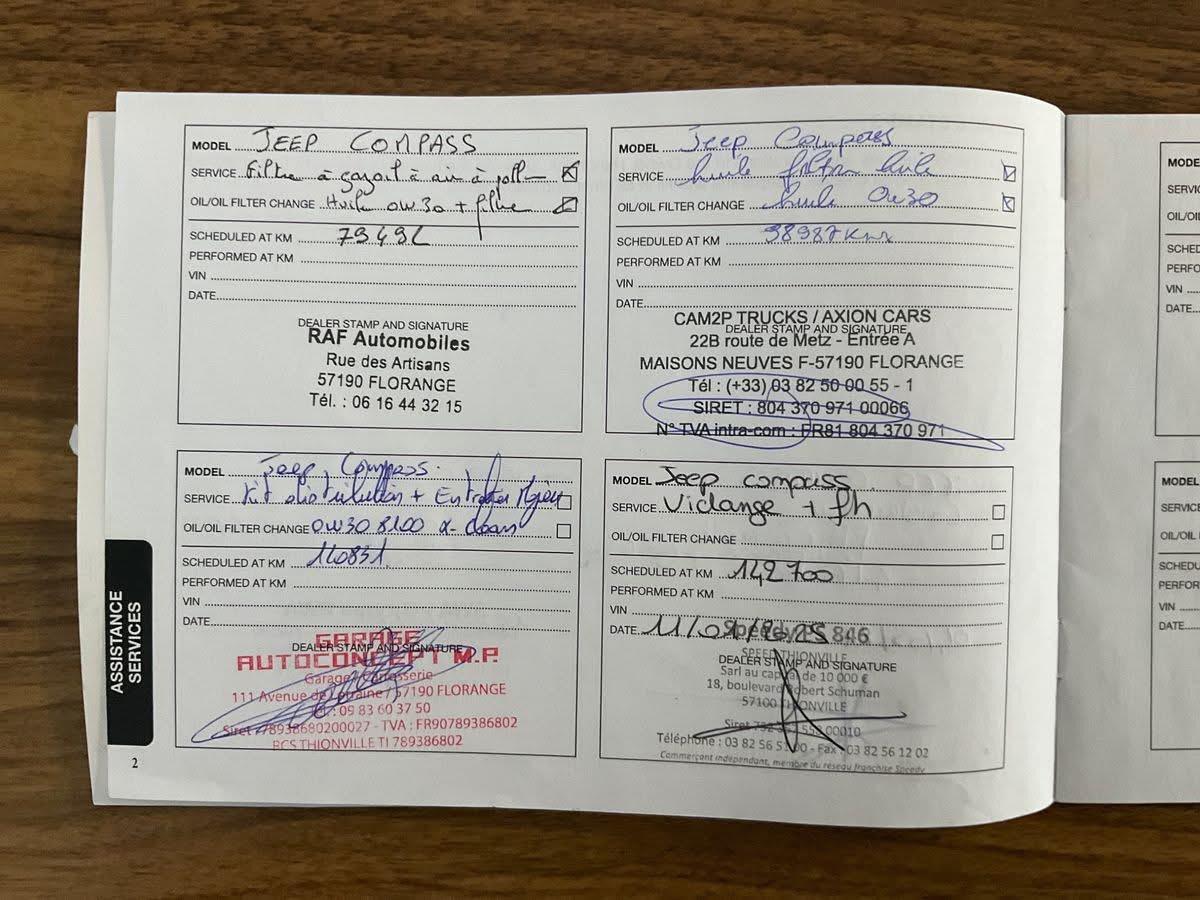 MODEL JEEP COMPASS
SERVICE Filtre à gazoil à air à poll
OIL/OIL FILTER CHANGE Huile 0W30 + filtre
SCHEDULED AT KM
PERFORMED AT KM
VIN
DATE
DEALER STAMP AND SIGNATURE
RAF Automobiles
Rue des Artisans
57190 FLORANGE
Tél. : 06 16 44 32 15
MODEL Jeep Compass
SERVICE huile filtre huile
OIL/OIL FILTER CHANGE huile 0w30
SCHEDULED AT KM 98987 Km
PERFORMED AT KM
VIN
DATE
CAM2P TRUCKS / AXION CARS
DEALER STAMP AND SIGNATURE
22B route de Metz - Entrée A
MAISONS NEUVES F-57190 FLORANGE
Tél : (+33) 03 82 50 00 55 - 1
SIRET : 804 370 971 00066
N° TVA intra-com : FR81 804 370 971
MODEL Jeep Compass.
SERVICE Kit distribution +
OIL/OIL FILTER CHANGE 0W30 8100 x-clean
SCHEDULED AT KM 120831
PERFORMED AT KM
VIN
DATE
GARAGE
DEALER STAMP AND SIGNATURE
AUTOCONCEPT M.P.
Garage Carrosserie
111 Avenue de Lorraine / 57190 FLORANGE
Tél : 09 83 60 37 50
Siret : 78938680200027 - TVA : FR90789386802
RCS THIONVILLE TI 789386802
MODEL Jeep compass
SERVICE Vidange + fh
OIL/OIL FILTER CHANGE
SCHEDULED AT KM 142700
PERFORMED AT KM
VIN
DATE 11/09/2025 846
SPEED THIONVILLE
DEALER STAMP AND SIGNATURE
Sarl au capital de 10 000 €
18, boulevard Robert Schuman
57100 THIONVILLE
Siret 00010
Téléphone : 03 82 56 - Fax 03 82 56 12 02
Commerçant indépendant, membre du réseau franchise Speedy
ASSISTANCE
SERVICES
2
MODE
SERVIC
OIL/OIL
SCHED
PERFO
VIN
DATE
MODEL
SERVICE
OIL/OIL
SCHEDU
PERFOR
VIN
DATE